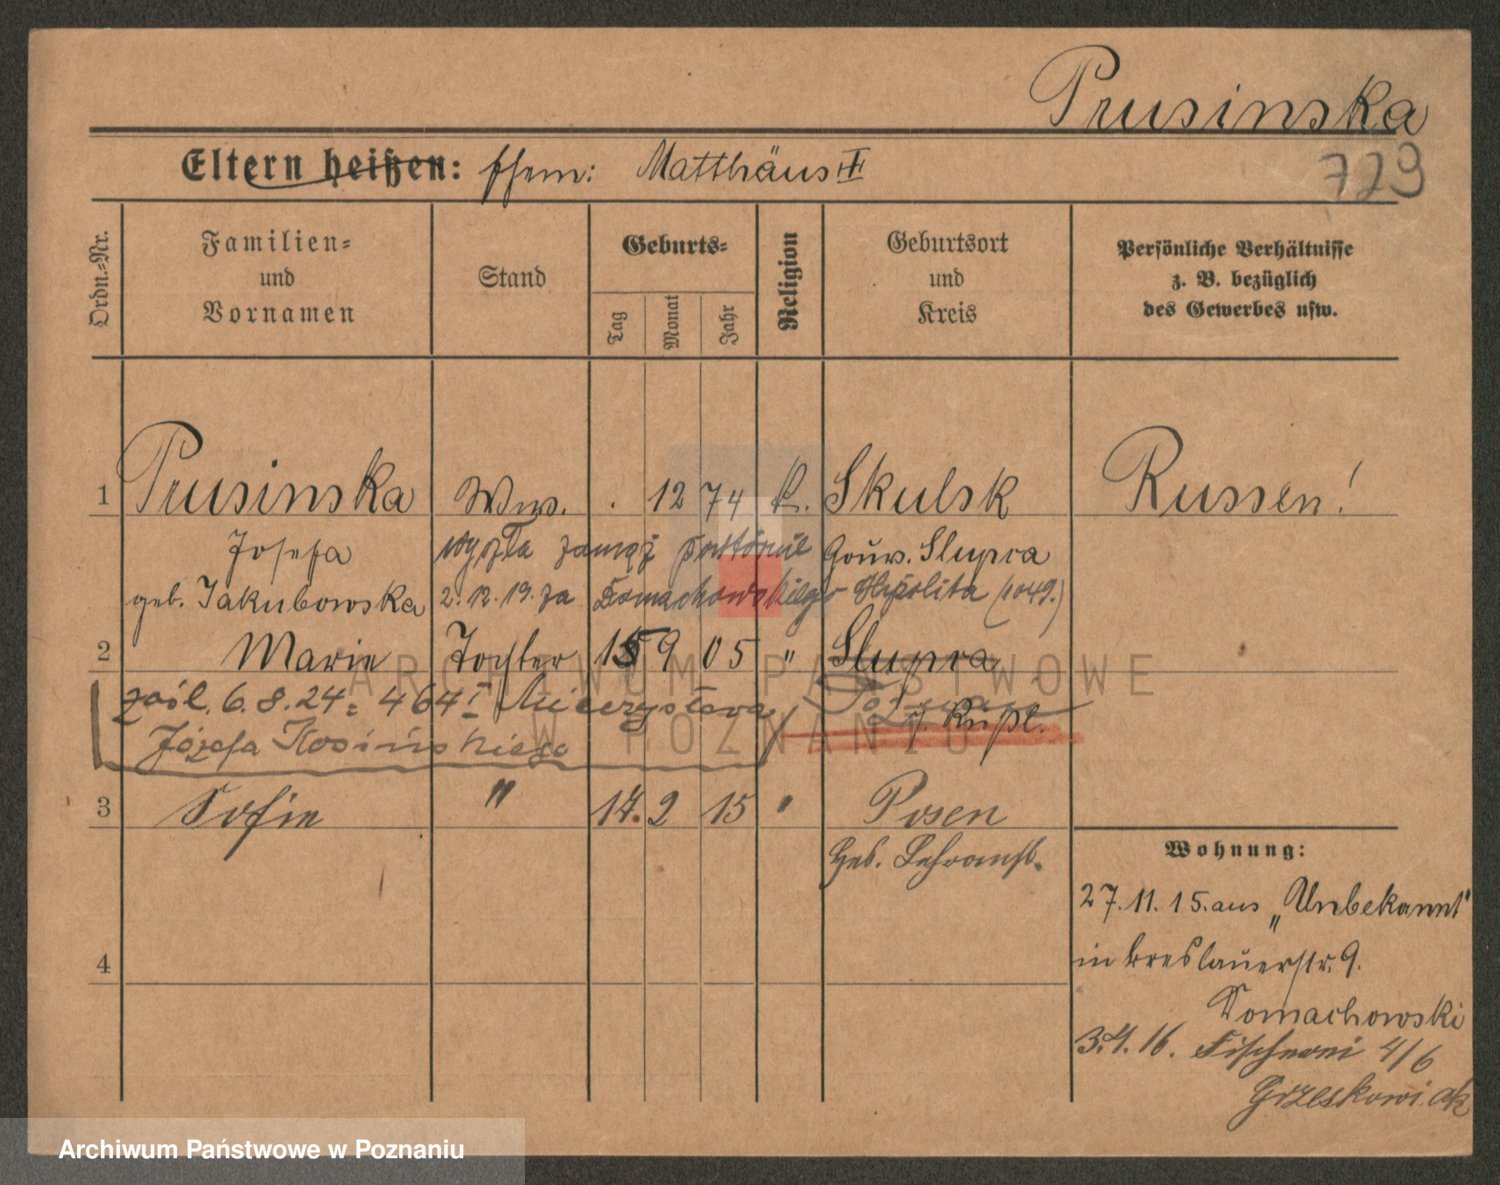 Prusinska
Eltern heißen: Ehem: Matthäus II
729
Ordn.-Nr.
Familien-
und
Vornamen
Stand
Geburts-
Tag
Monat
Jahr
Religion
Geburtsort
und
Kreis
Persönliche Verhältnisse
z. B. bezüglich
des Gewerbes usw.
1 Prusinska Ww. . 12 74 k. Skulsk Russen!
Josefa wyszła zamąż powtórnie Gouv. Slupca
geb. Jakubowska 2.12.19. za Domachowskiego Hipolita (1049.)
2 Marie Tochter 15 9 05 " Slupca
zaśl. 6.8.24 = 464 I Mieczysława
Rußl.
Józefa Kosińskiego
3 Sofie " 17. 2 15 " Posen
Heb. Lehranst.
Wohnung:
27.11.15. aus "Unbekannt"
in Breslauerstr. 9.
4
Domachowski
3.4.16. Fischerei 4/6
Grzeskowiak
ARCHIWUM PAŃSTWOWE
W POZNANIU
Archiwum Państwowe w Poznaniu